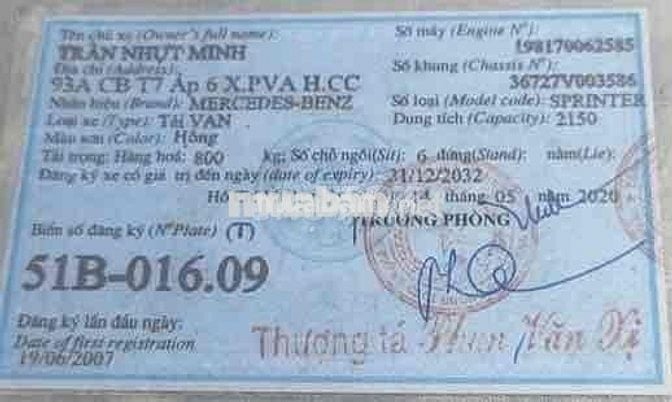 Tên chủ xe (Owner's full name):
TRẦN NHỰT MINH
Địa chỉ (Address):
93A CB T7 Ấp 6 X.PVA H.CC
Nhãn hiệu (Brand): MERCEDES-BENZ
Loại xe (Type): TẢI VAN
Màu sơn (Color): Hồng
Tải trọng: Hàng hoá: 800 kg; Số chỗ ngồi(Sit): 6 đứng(Stand): nằm(Lie):
Đăng ký xe có giá trị đến ngày (date of expiry): 31/12/2032
Số máy (Engine Nº):
198170062585
Số khung (Chassis Nº):
36727V003586
Số loại (Model code): SPRINTER
Dung tích (Capacity): 2150
Hồ tháng 05 năm 2020
muaban
TRƯỞNG PHÒNG
Biển số đăng ký (Nº Plate) (T)
51B-016.09
Đăng ký lần đầu ngày:
Date of first registration
19/06/2007
Thượng tá Văn